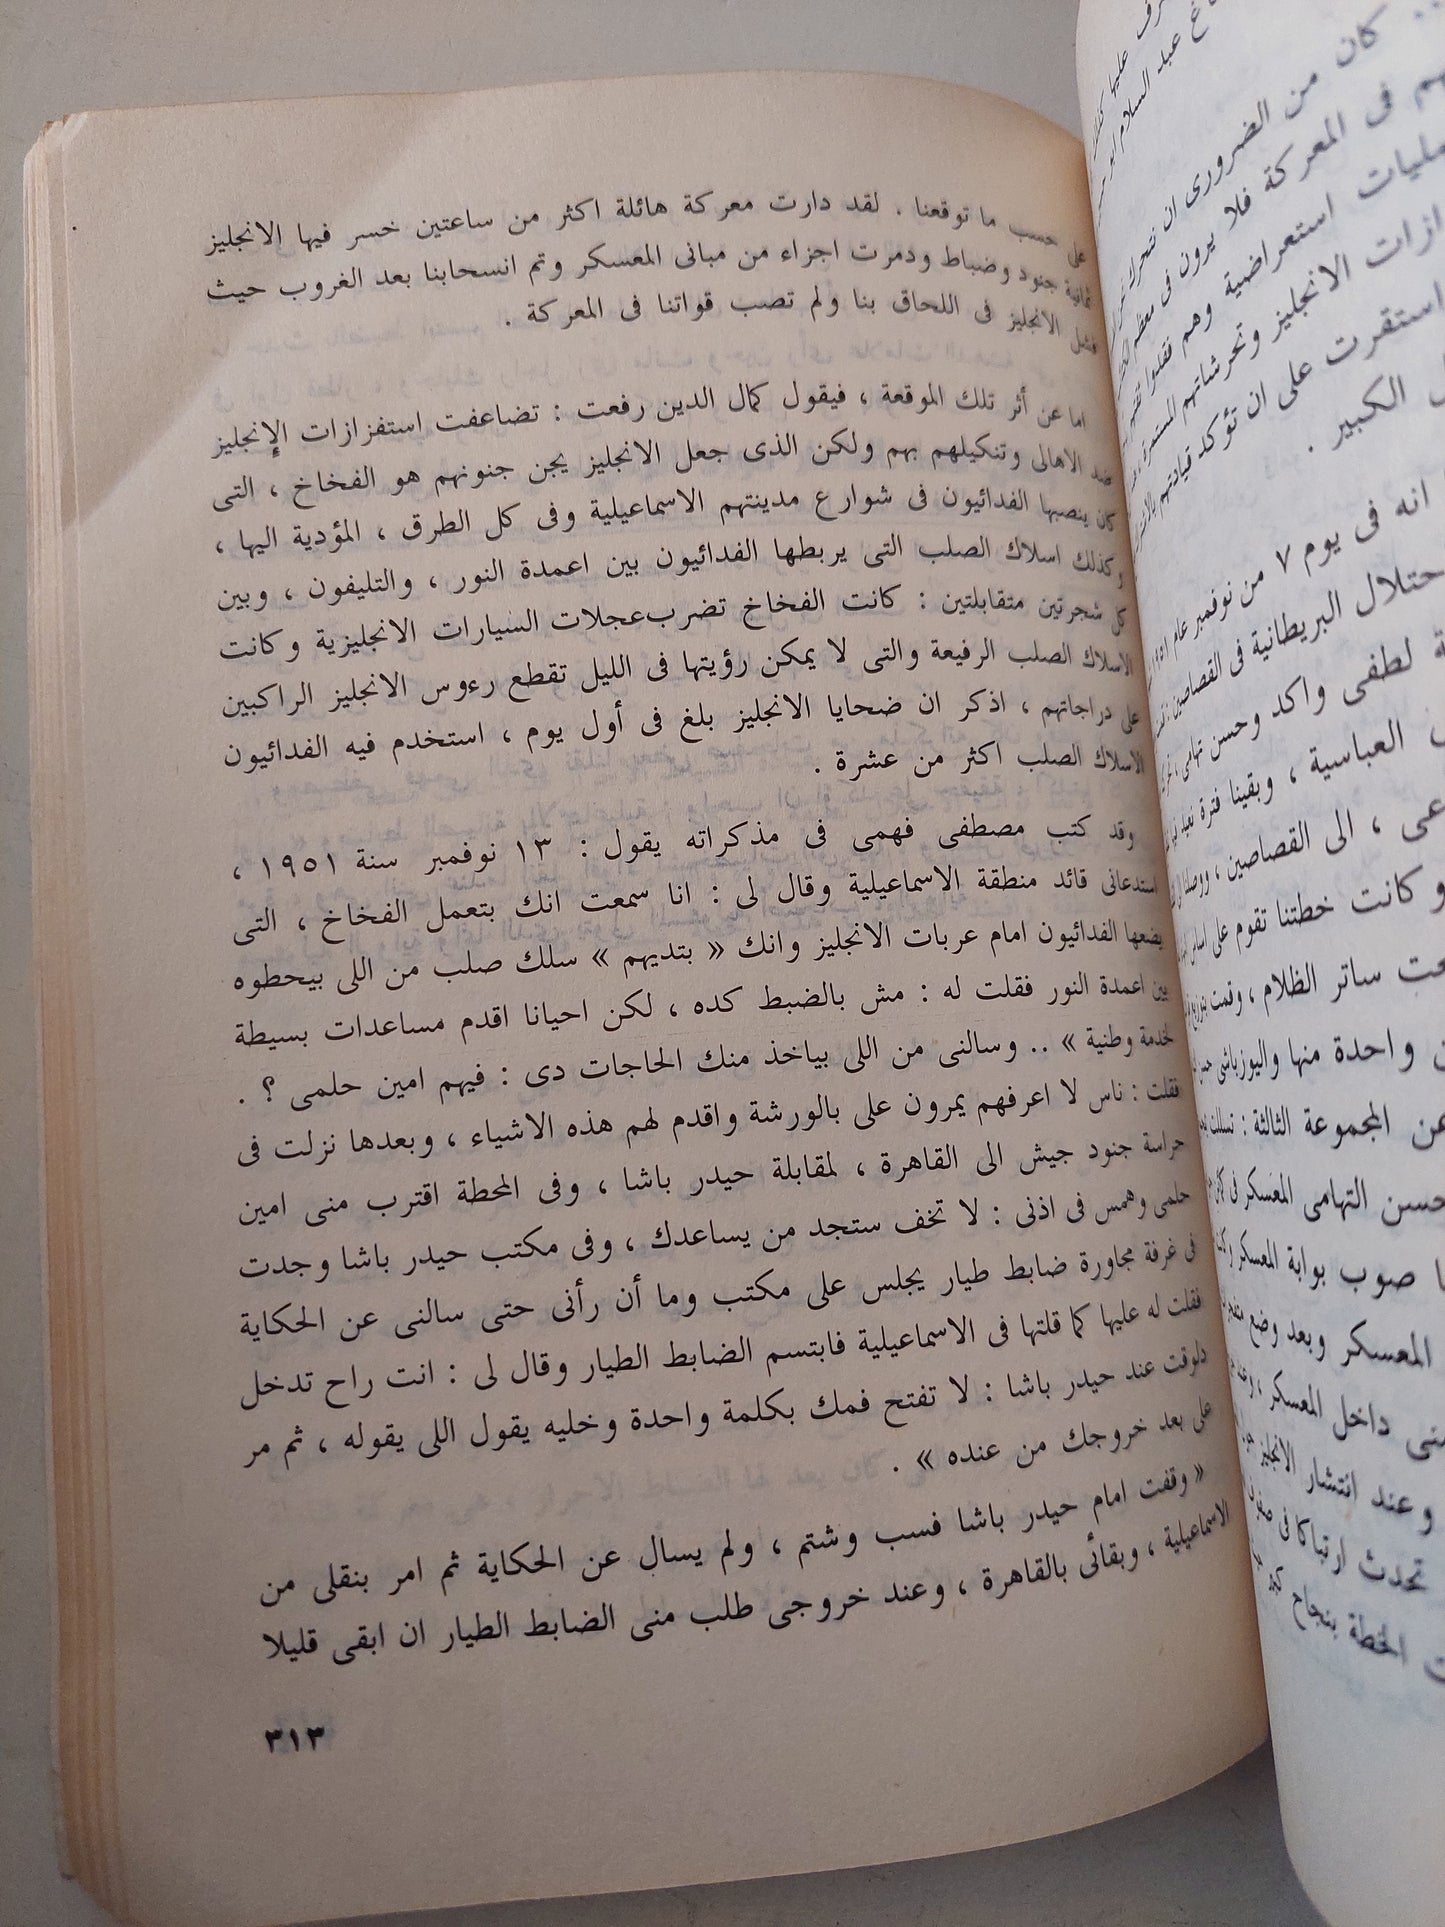 على حسب ما توقعنا . لقد دارت معركة هائلة اكثر من ساعتين خسر فيها الانجليز
ثمانية جنود وضباط ودمرت اجزاء من مبانى المعسكر وتم انسحابنا بعد الغروب حيث
فشل الانجليز فى اللحاق بنا ولم تصب قواتنا فى المعركة .
اما عن أثر تلك الموقعة ، فيقول كمال الدين رفعت : تضاعفت استفزازات الإنجليز
ضد الاهالى وتنكيلهم بهم ولكن الذى جعل الانجليز يجن جنونهم هو الفخاخ ، التى
كان ينصبها الفدائيون فى شوارع مدينتهم الاسماعيلية وفى كل الطرق ، المؤدية اليها ،
وكذلك اسلاك الصلب التى يربطها الفدائيون بين اعمدة النور ، والتليفون ، وبين
كل شجرتين متقابلتين : كانت الفخاخ تضرب عجلات السيارات الانجليزية وكانت
الاسلاك الصلب الرفيعة والتى لا يمكن رؤيتها فى الليل تقطع رءوس الانجليز الراكبين
على دراجاتهم ، اذكر ان ضحايا الانجليز بلغ فى أول يوم ، استخدم فيه الفدائيون
الاسلاك الصلب اكثر من عشرة .
وقد كتب مصطفى فهمى فى مذكراته يقول : ١٣ نوفمبر سنة ١٩٥١ ،
استدعانى قائد منطقة الاسماعيلية وقال لى : انا سمعت انك بتعمل الفخاخ ، التى
يضعها الفدائيون امام عربات الانجليز وانك « بتديهم » سلك صلب من اللى بيحطوه
بين اعمدة النور فقلت له : مش بالضبط كده ، لكن احيانا اقدم مساعدات بسيطة
لخدمة وطنية » .. وسالنى من اللى بياخذ منك الحاجات دى : فيهم امين حلمى ؟ .
فقلت : ناس لا اعرفهم يمرون على بالورشة واقدم لهم هذه الاشياء ، وبعدها نزلت فى
حراسة جنود جيش الى القاهرة ، لمقابلة حيدر باشا ، وفى المحطة اقترب منى امين
حلمى وهمس فى اذنى : لا تخف ستجد من يساعدك ، وفى مكتب حيدر باشا وجدت
فى غرفة مجاورة ضابط طيار يجلس على مكتب وما أن رأنى حتى سالنى عن الحكاية
فقلت له عليها كما قلتها فى الاسماعيلية فابتسم الضابط الطيار وقال لى : انت راح تدخل
دلوقت عند حيدر باشا : لا تفتح فمك بكلمة واحدة وخليه يقول اللى يقوله ، ثم مر
على بعد خروجك من عنده » .
« وقفت امام حيدر باشا فسب وشتم ، ولم يسال عن الحكاية ثم امر بنقلى من
الاسماعيلية ، وبقائى بالقاهرة ، وعند خروجى طلب منى الضابط الطيار ان ابقى قليلا
٣١٣
عبد السلام
كان من الضرورى ان نتحرك
فى المعركة فلا يرون فى معظم
استعراضية وهم
الانجليز وتحرشاتهم المستمرة
استقرت على ان تؤكد قيادتهم
الكبير .
انه فى يوم ٧ من نوفمبر عام ١٩٥١
البريطانية فى القصاصين
لطفى واكد وحسن تهامى
العباسية ، وبقينا فترة
الى القصاصين ،
وكانت خطتنا تقوم على اساس
ساتر الظلام ، وقمت
واحدة منها واليوزباشى
عن المجموعة الثالثة :
حسن التهامى المعسكر فى
صوب بوابة المعسكر
المعسكر وبعد وضع
داخل المعسكر ،
وعند انتشار الانجليز
تحدث ارتباكا فى
الخطة بنجاح